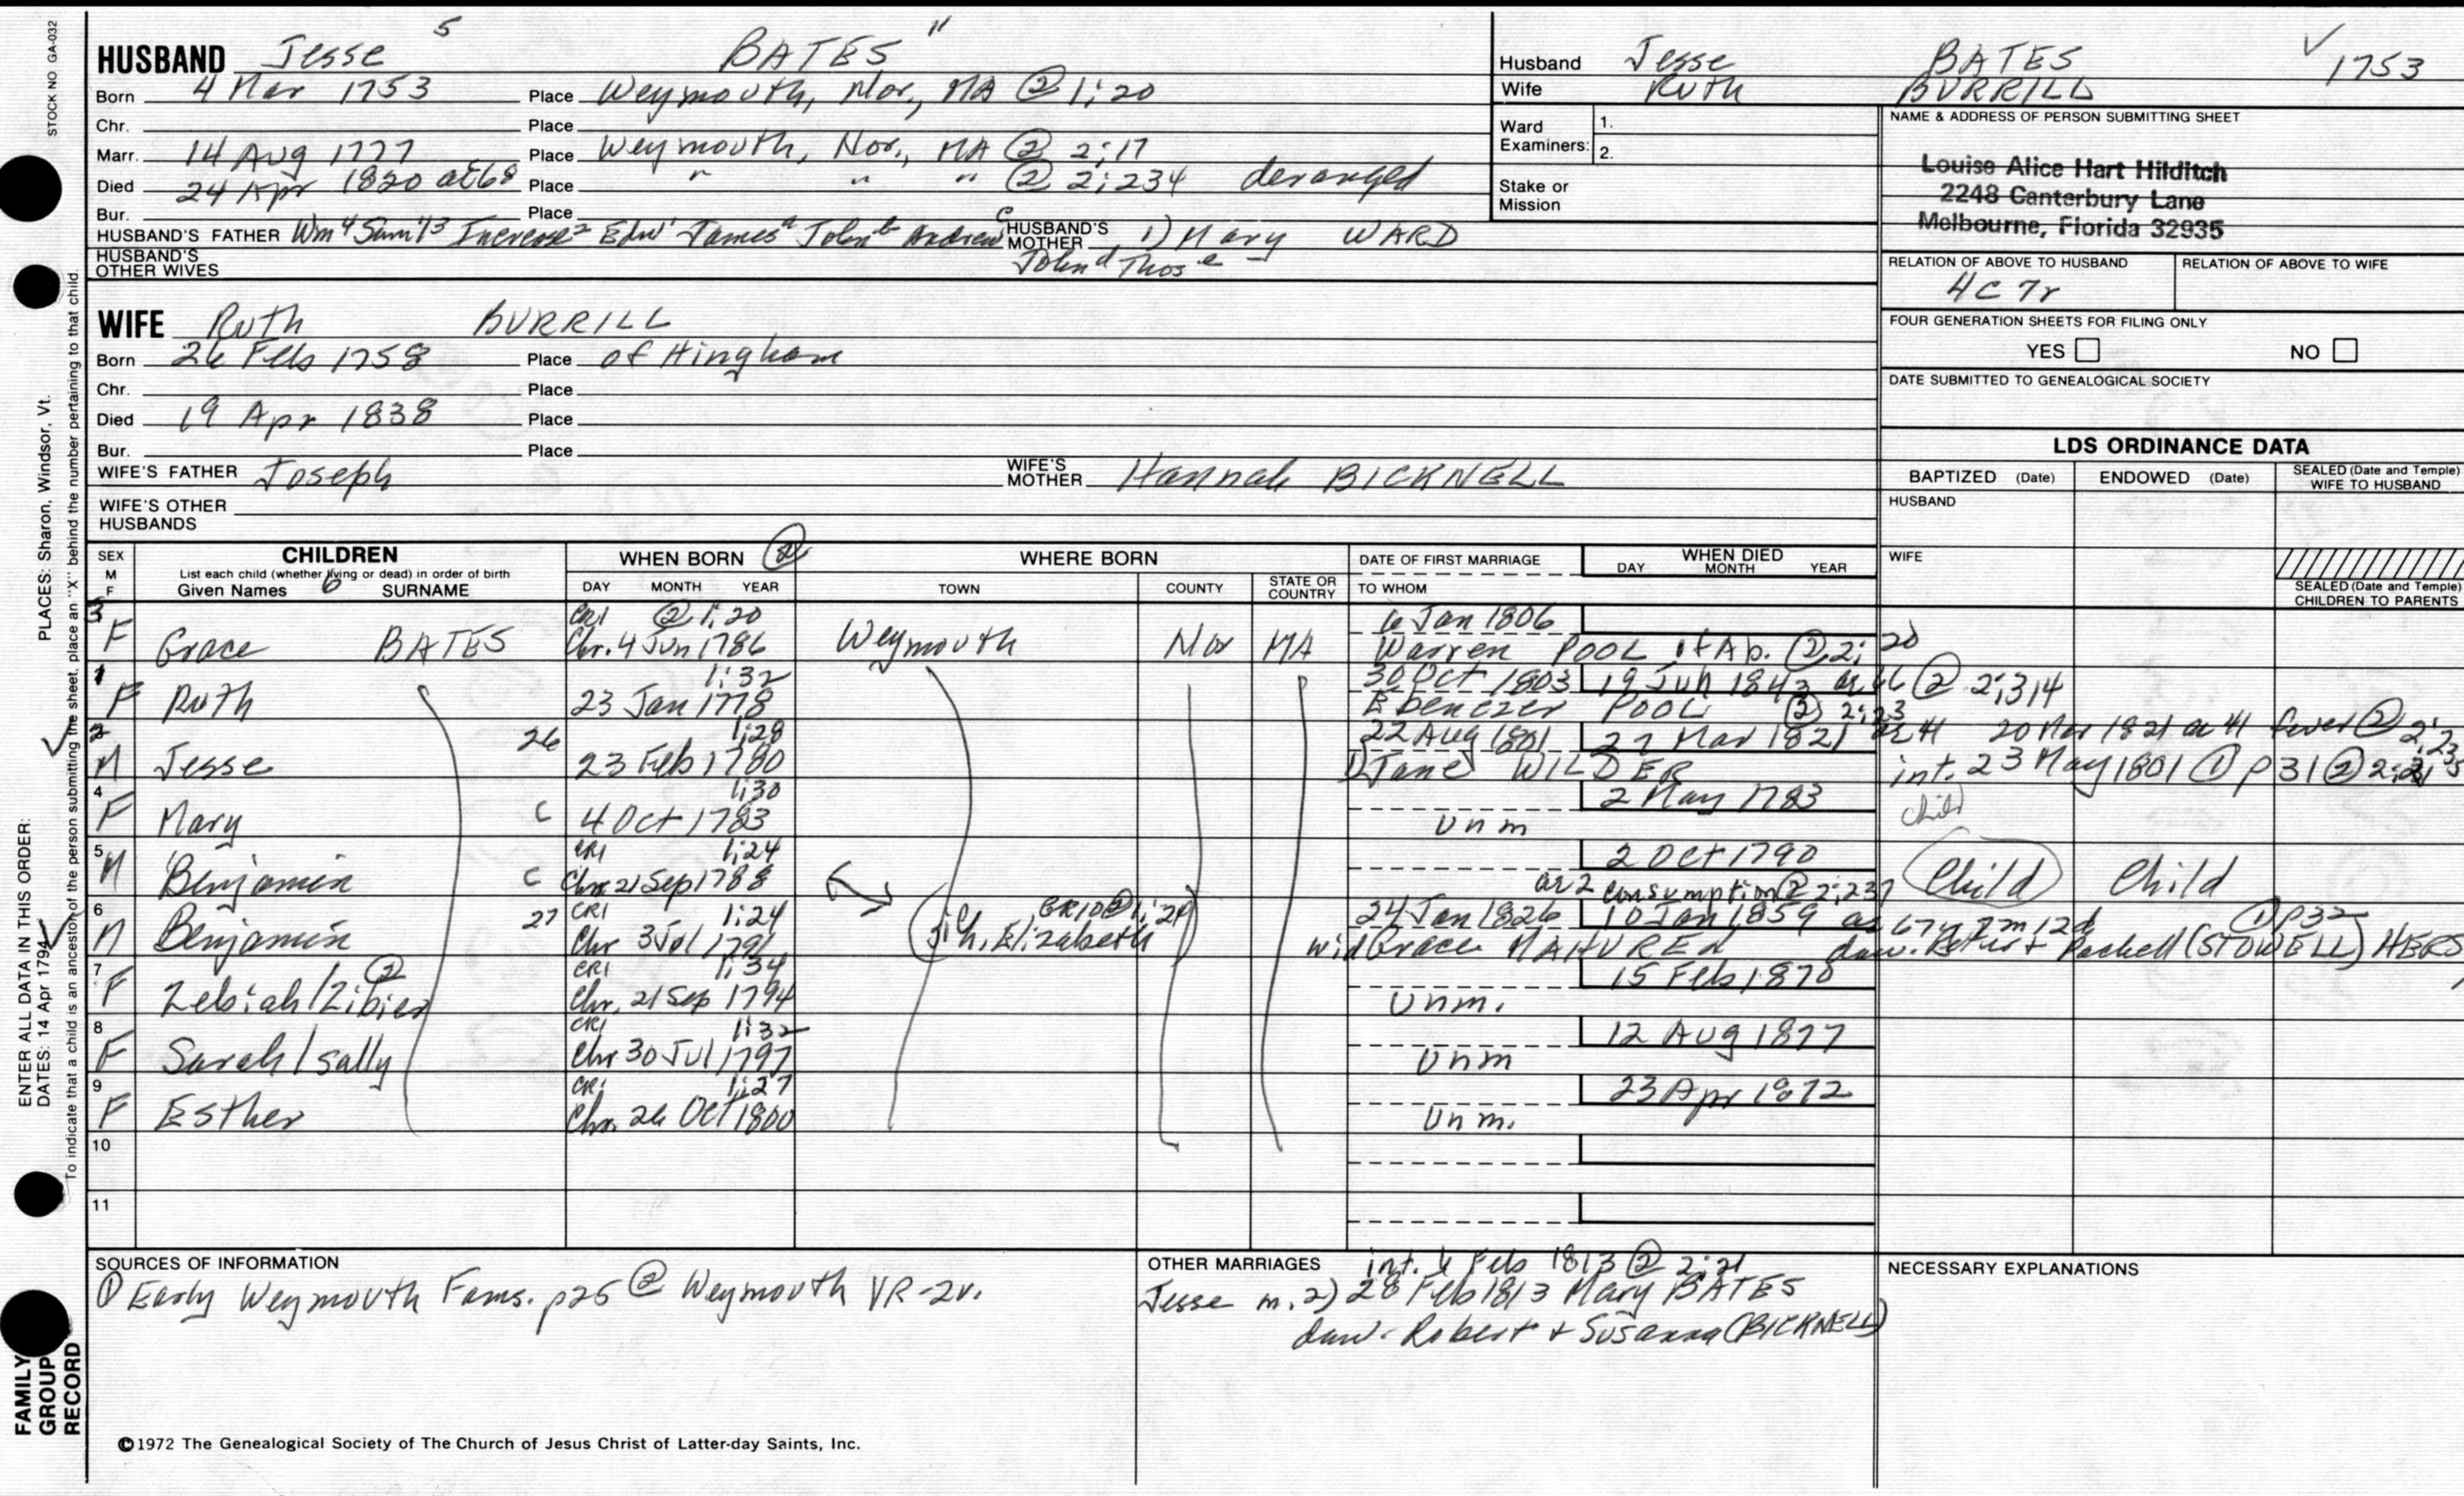 STOCK NO GA-032
HUSBAND Jesse 5 BATES "
Born 4 Mar 1753 Place Weymouth, Nor., MA @ 1:20
Chr. Place
Marr. 14 Aug 1777 Place Weymouth, Nor., MA ② 2:17
Died 24 Apr 1820 ae 68 Place " " " ② 2:234 deranged
Bur. Place
HUSBAND'S FATHER Wm4 Saml3 Increase2 Edw1 Jamesa Johnb Andrewc HUSBAND'S MOTHER 1) Mary WARD
HUSBAND'S OTHER WIVES Johnd Those
Husband Jesse BATES ✓ 1753
Wife Ruth BURRILL
Ward Examiners: 1.
2.
Stake or Mission
NAME & ADDRESS OF PERSON SUBMITTING SHEET
Louise Alice Hart Hilditch
2248 Canterbury Lane
Melbourne, Florida 32935
RELATION OF ABOVE TO HUSBAND RELATION OF ABOVE TO WIFE
4C 7r
FOUR GENERATION SHEETS FOR FILING ONLY
YES NO
DATE SUBMITTED TO GENEALOGICAL SOCIETY
WIFE Ruth BURRILL
Born 26 Feb 1758 Place of Hingham
Chr. Place
Died 19 Apr 1838 Place
Bur. Place
WIFE'S FATHER Joseph WIFE'S MOTHER Hannah BICKNELL
WIFE'S OTHER HUSBANDS
LDS ORDINANCE DATA
BAPTIZED (Date) ENDOWED (Date) SEALED (Date and Temple) WIFE TO HUSBAND
HUSBAND
WIFE
SEALED (Date and Temple) CHILDREN TO PARENTS
SEX M F CHILDREN WHEN BORN ② WHERE BORN DATE OF FIRST MARRIAGE WHEN DIED
List each child (whether living or dead) in order of birth
Given Names 6 SURNAME DAY MONTH YEAR TOWN COUNTY STATE OR COUNTRY TO WHOM DAY MONTH YEAR
3 CR1 @ 1:20 6 Jan 1806
F Grace BATES Chr. 4 Jun 1786 Weymouth Nor MA Warren POOL of Ab. ② 2: 20
1 1:32 30 Oct 1803 19 Jun 1843 ae 66 ② 2:314
F Ruth 23 Jan 1778 Ebenezer POOL ② 2:23
2 26 1:28 22 Aug 1801 27 Mar 1821 ae 41 20 Mar 1821 ae 41 fever ②
M Jesse 23 Feb 1780 1) Jane WILDER int. 23 May 1801 ① p31 ②
4 1:30 2 May 1783
F Mary C 4 Oct 1783 Unm child
5 CR1 1:24 2 Oct 1790
M Benjamin C Chr 21 Sep 1788 ae 2 consumption ② 2:237 Child Child
6 27 CR1 1:24 24 Jan 1826 10 Jan 1859 ae 67y 7m 12d ① p32
M Benjamin Chr 3 Jul 1791 h. Elizabeth wid Grace dau. + Rachell (STOWELL)
7 ② CR1 1:34 15 Feb 1870
F Zebiah/Zibier Chr. 21 Sep 1794 Unm.
8 CR1 1:32 12 Aug 1877
F Sarah/sally Chr 30 Jul 1797 Unm
9 CR1 1:27 23 Apr 1872
F Esther Chr. 26 Oct 1800 Unm.
10
11
SOURCES OF INFORMATION
① Early Weymouth Fams. p25 ② Weymouth VR-2v.
OTHER MARRIAGES int. 6 Feb 1813 ② 2:21
Jesse m. 2) 28 Feb 1813 Mary BATES
dau. Robert + Susanna (BICKNELL)
NECESSARY EXPLANATIONS
©1972 The Genealogical Society of The Church of Jesus Christ of Latter-day Saints, Inc.
FAMILY GROUP RECORD
ENTER ALL DATA IN THIS ORDER:
DATES: 14 Apr 1794
PLACES: Sharon, Windsor, Vt.
To indicate that a child is an ancestor of the person submitting the sheet, place an "X" behind the number pertaining to that child.